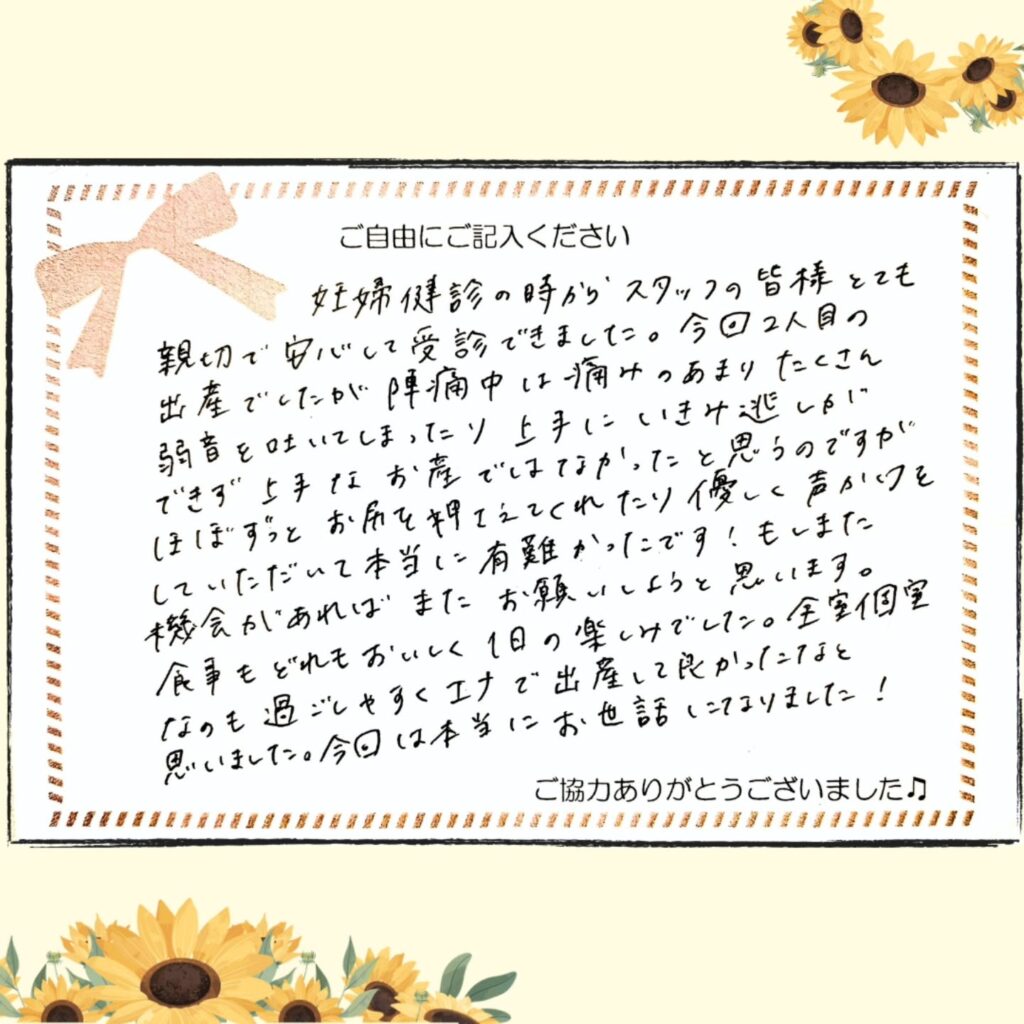 ご自由にご記入ください
妊婦健診の時から スタッフの皆様とても
親切で安心して受診できました。今回2人目の
出産でしたが 陣痛中は痛みのあまり たくさん
弱音を吐いてしまったり 上手にいきみ逃しが
できず 上手なお産ではなかったと思うのですが
ほぼずっと お尻を押さえてくれたり優しく声かけを
していただいて本当に有難かったです!もしまた
機会があれば またお願いしようと思います。
食事もどれもおいしく1日の楽しみでした。全室個室
なのも過ごしやすくエナで出産して良かったなと
思いました。今回は本当にお世話になりました!
ご協力ありがとうございました♫